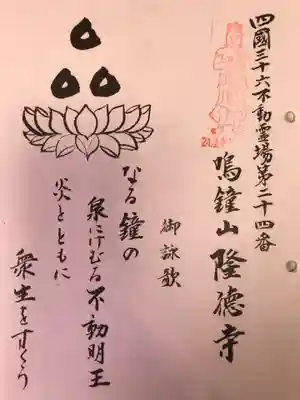 四國三十六不動霊場第二十四番
鳴鐘山隆德寺
御詠歌
なる鐘の
泉にけむる不動明王
炎とともに
衆生をすくう